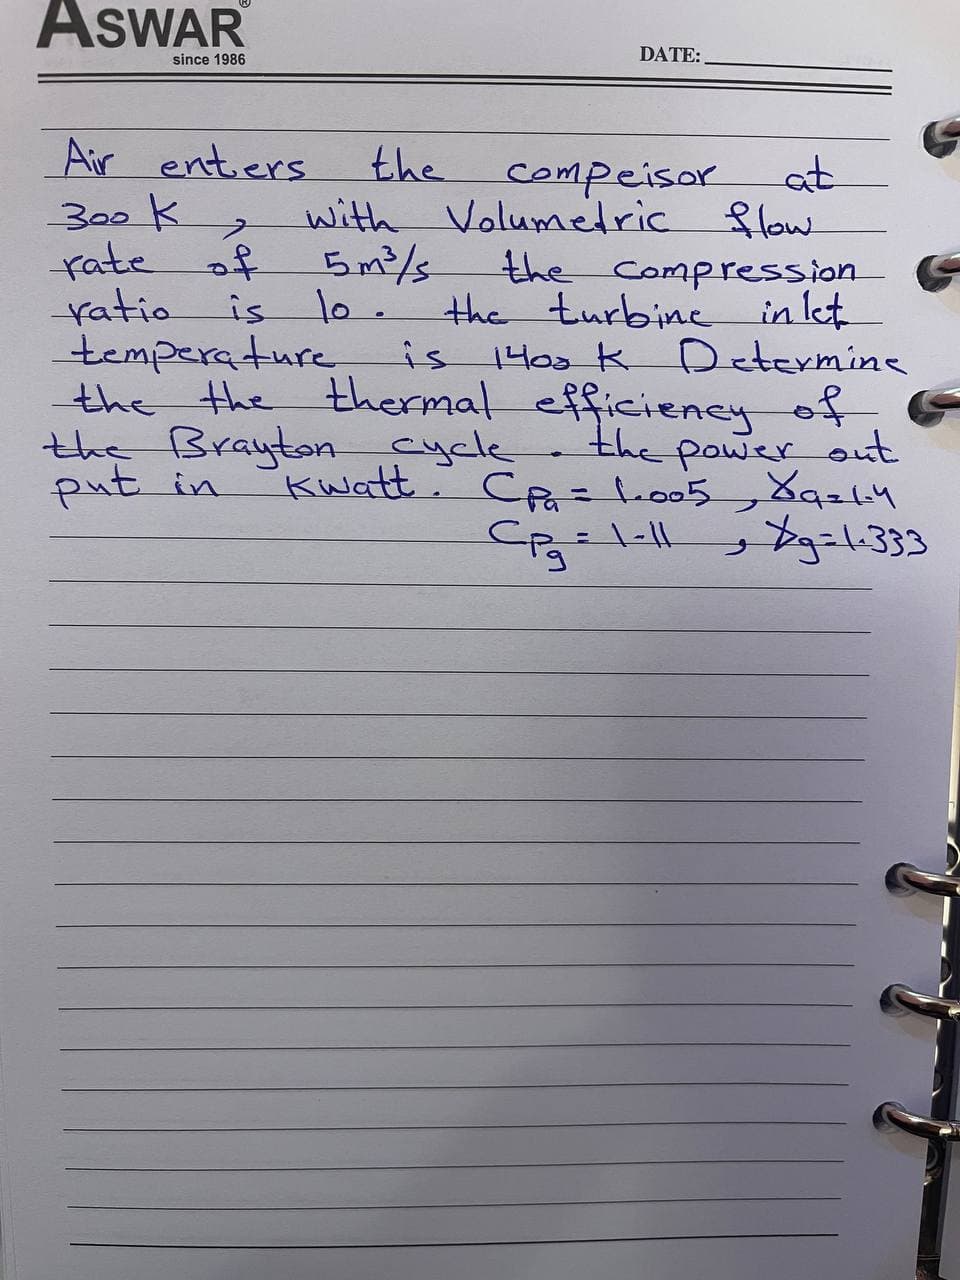 ASWAR®
since 1986
DATE:
Air enters the compeisor at
300 K , with Volumedric flow
rate of 5 m³/s the compression
ratio is 10 . the turbine inlet
temperature is 1400 K Determine
the the thermal efficiency of
the Brayton cycle . the power out
put in Kwatt. CPa = 1.005 , γa=1.4
CPg = 1.11 , γg=1.333